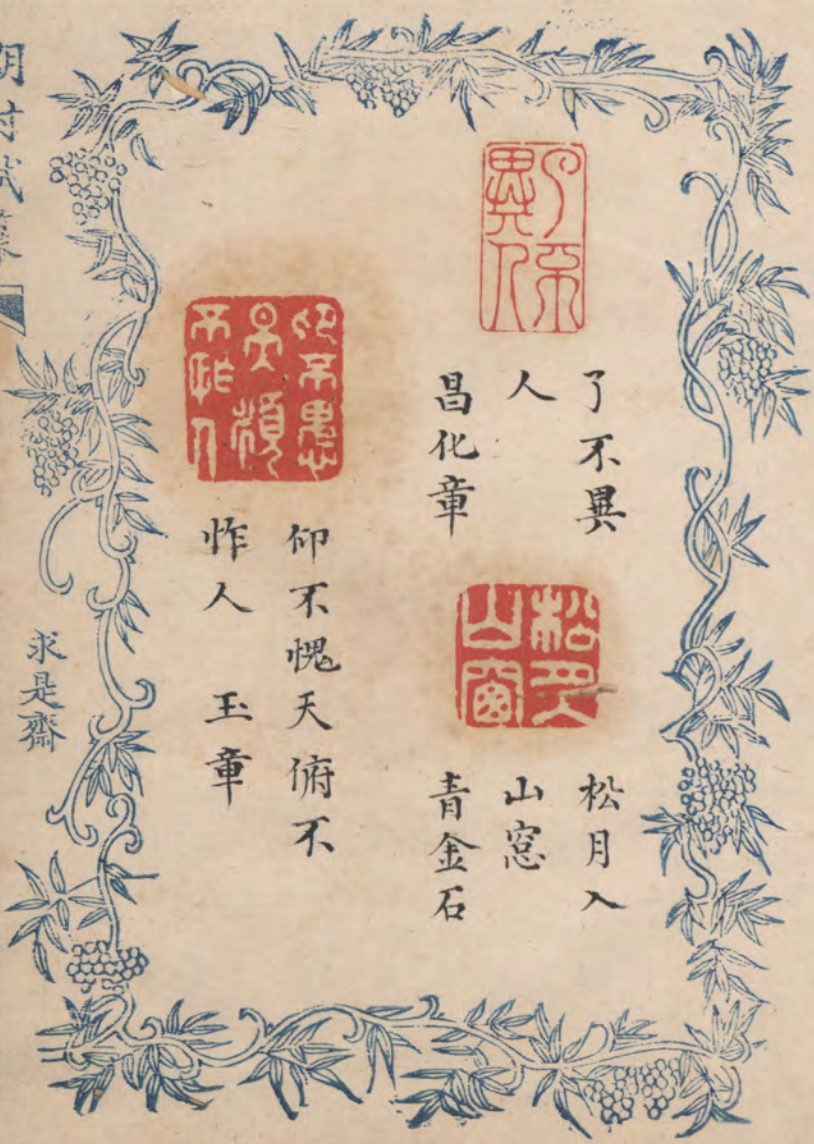 了不
異人
了不異
人
昌化章
松月入
山窗
松月入
山窓
青金石
仰不愧
天頫
不怍人
仰不愧天俯不
怍人 玉章
求是齋